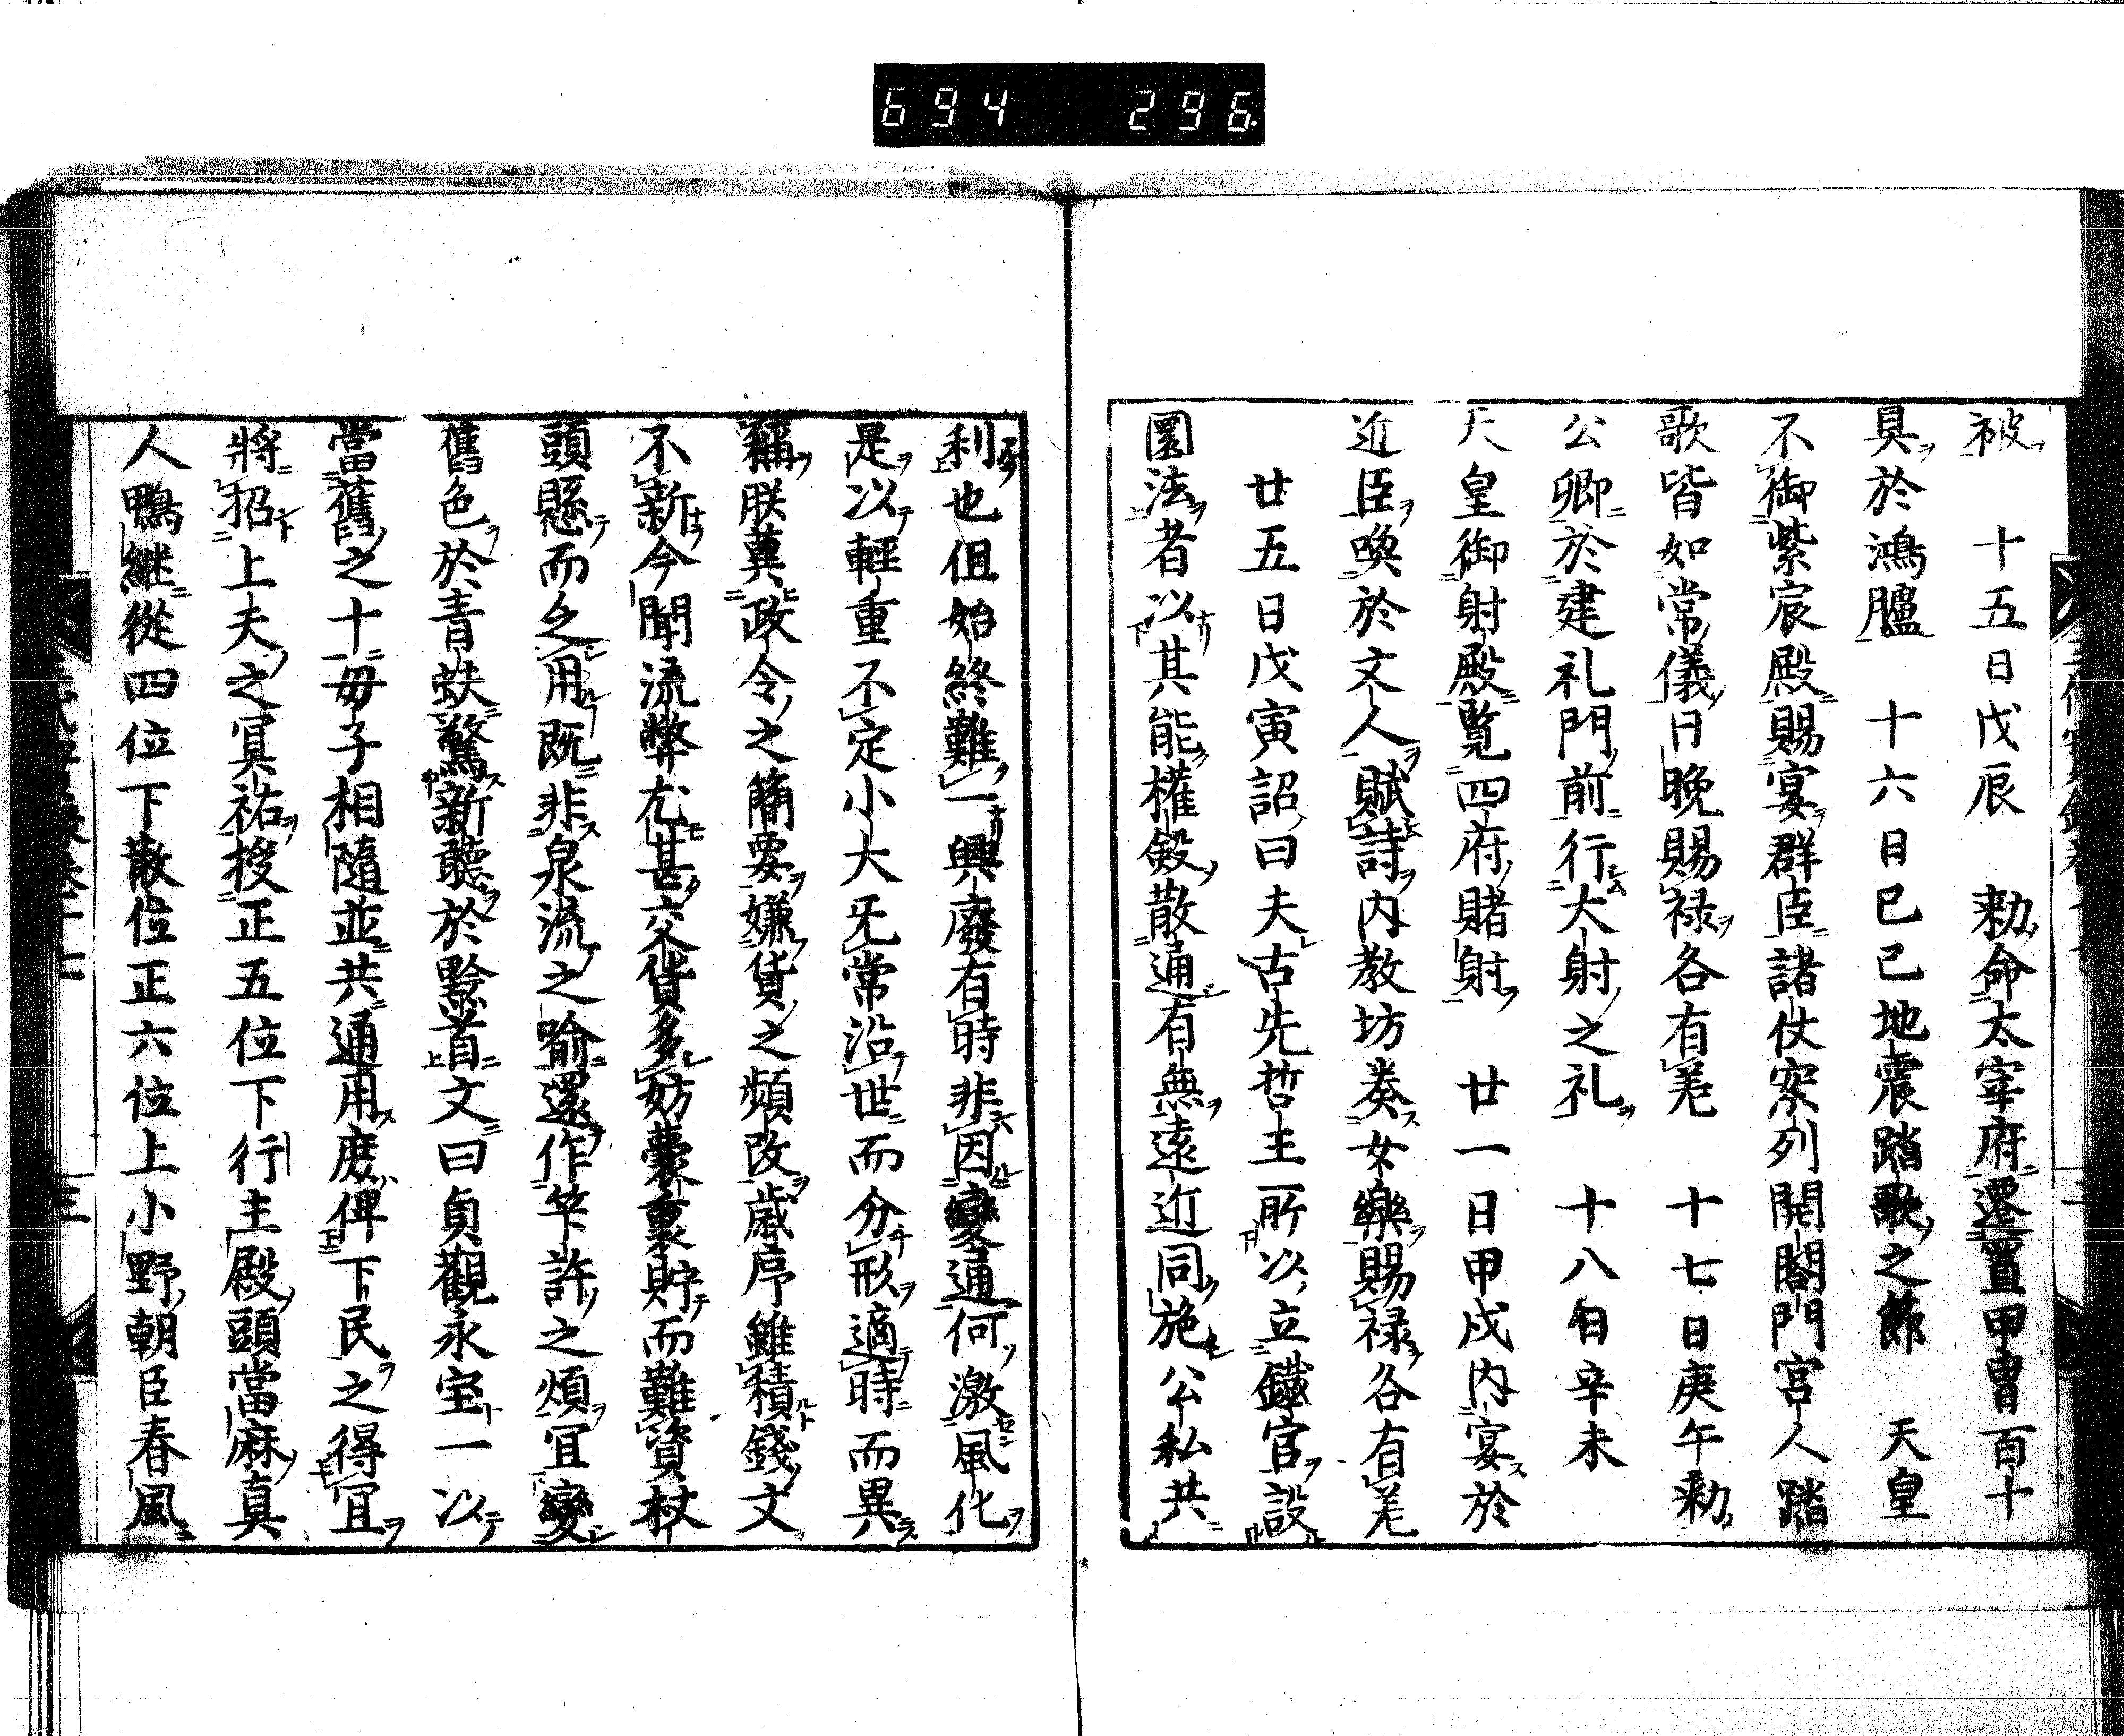 694 296
被　十五日戊辰　勑命太宰府遷置甲冑百十
具於鴻臚　十六日巳己地震踏歌之節　天皇
不御紫宸殿賜宴群臣諸仗案列開閤門宮人踏
歌皆如常儀日晚賜禄各有差　十七日庚午勑
公卿於建礼門前行大射之礼　十八日辛未
天皇御射殿覧四府賭射　廿一日甲戌内宴於
近臣喚於文人賦詩内教坊奏女樂賜禄各有差
廿五日戊寅詔曰夫古先哲王所以立鐵官設
圜法者以其能權斂散通有無遠近同施公私共
利也但始終難一興廢有時非因變通何激風化
是以輕重不定小大无常沿世而分形適時而異
稱朕冀政令之簡要嫌貨之頻改歲序雖積錢文
不新今聞流弊尤甚交貨多妨囊裏貯而難資杖
頭懸而乏用既非泉流之喻還作竿許之煩宜變
舊色於青蚨驚新聽於黔首文曰貞觀永宝一以
當舊之十毋子相隨並共通用庻俾下民之得宜
將招上夫之冥祐授正五位下行主殿頭當麻真
人鴨継從四位下散位正六位上小野朝臣春風
三